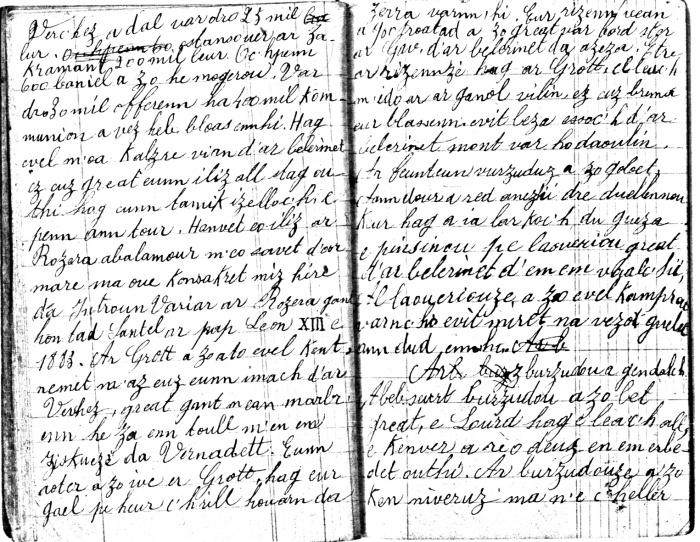 Verchez a dal var dro 25 mil
lur. ostansouer ar Za-
Kramant 200 mil leur. Oc'hpenn
600 baniel a zo he mogerou. Var
dro 30 mil offerenn ha 400 mil Kom-
munion a vez hebb bloas ennhi. Hag
evel m'oa Kalz re vian d'ar belerinet
ez euz great eunn iliz all dag ou-
thi hag eunn tamik izelloc'h e
penn ann tour. Hanvet eo iliz ar
Rozera abalamour m'eo savet d'oor
mare ma oue Konsakret miz hire
da Introun Variar ar Rozera gant
hon tad Santel ar pap Leon XIII e
1883. Ar Grott a zo ato evel Kent
nemet ma'az euz eunn imach d'ar
Verhez, great gant mean marbr
enn he za enn toull m'en em
ziskuezt da Vernadett. Eunn
aoter a zo ive er Grott, hag eur
gael pe heur c'hrill houarn da
zerra varnhi. Eur rizenn vean
a 700 troatad a zo great var bord ster
ar Gav. d'ar belerinet da azeza. Etre
ar rizennze hag ar Grott, el leac'h
m'edo ar ar ganol vilin, ez euz brema
eur blasenn evit leza eaoc'h d'ar
belerinet mont var ho daoulin.
Ar feunteun vurzuduz a zo goloet,
ann dour a red anezhi dre duellennou
Kur hag a ia lar Koc'h du gueza
e pinsinou pe e laoueriou great
d'ar belerinet d'em em voalc'hi
Al laoueriouze a zo evel Kamprac
varncho evit miret na vezot guelet
ann dud enn ho.
Ar burzudou a gendalc'h
A beb seurt burzudou a zo bet
great, e Lourd hag e leac'h all,
e Kenver a re o deuz en em erbe-
det outhi. Ar burzudouze a zo
Ken niveruz ma n'e c'heller